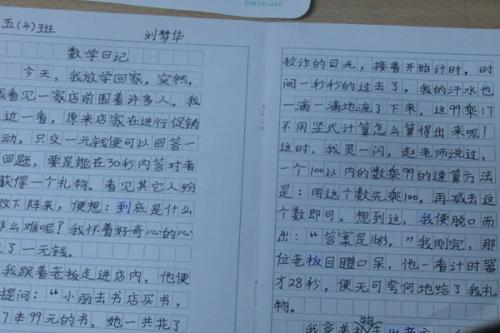 五(4)班
刘梦华
数学日记
今天，我放学回家，突然，
我看见一家店前围着许多人。我
过一看，原来店家在进行促销
动，只交一元钱便可以回答一
回题，要是能在30秒内答对者
获得一个礼物。看见其它人纷
败下阵来，便想：到底是什么
那么难呢？我怀着好奇心的心
了一元钱。
我跟着老板走进店内，他便
提问：“小丽去书店买书，
7本99元的书，她一共花了
狡诈的目光，接着开始计时，时
间一秒秒的过去了，我的汗水也
一滴一滴地流了下来，这99乘17
不用竖式计算怎么算得出来呢？
这时，我灵一闪，赵老师说过，
一个100以内的数乘99的速算方法
是：用这个数先乘100，再减去这
个数即可。想到这，我便脱口而
出：“答案是1683。”我刚完，那
位老板目瞪口呆，他一看计时器
才28秒，便无可奈何地给了我礼
物。